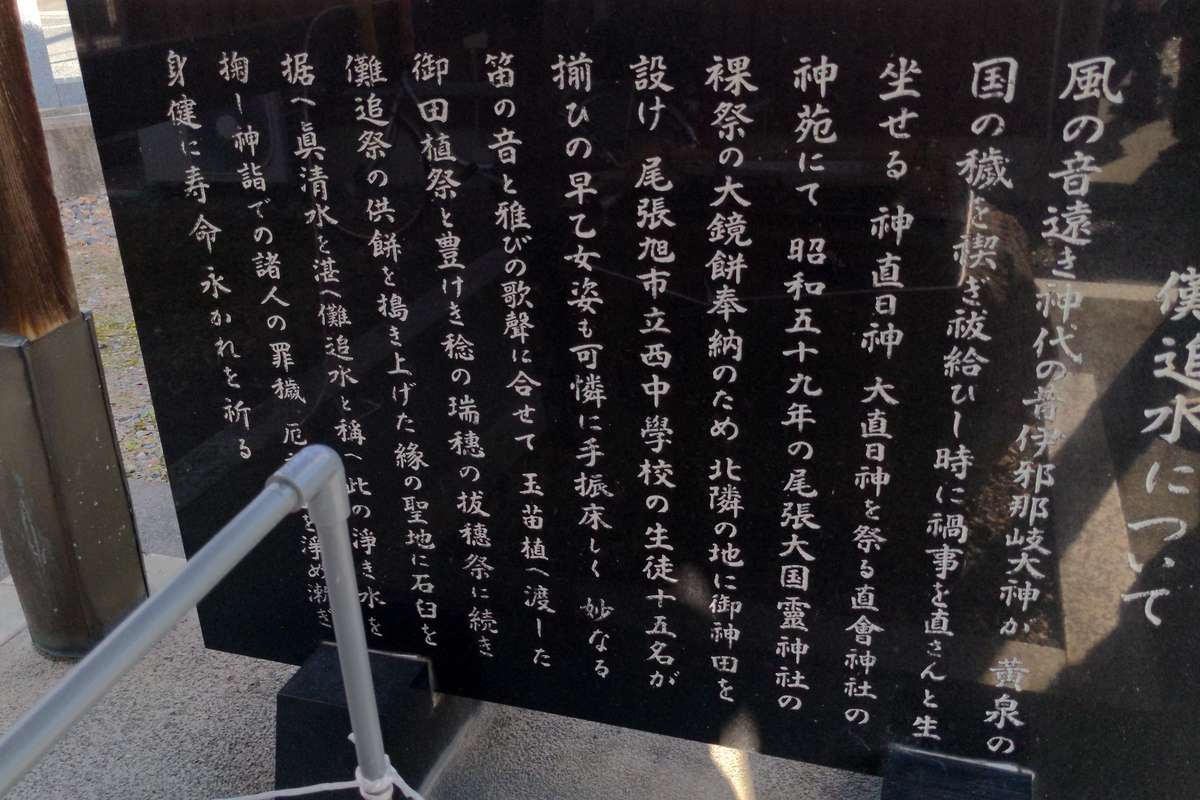 儺追水について
風の音遠き神代の昔伊邪那岐大神が 黄泉の
国の穢を禊ぎ祓給ひし時に禍事を直さんと生
坐せる 神直日神 大直日神を祭る直會神社の
神苑にて 昭和五十九年の尾張大国霊神社の
裸祭の大鏡餅奉納のため 北隣の地に御神田を
設け 尾張旭市立西中學校の生徒十五名が
揃ひの早乙女姿も可憐に手振床しく 妙なる
笛の音と雅びの歌聲に合せて 玉苗植へ渡した
御田植祭と豊けき稔の瑞穗の抜穗祭に続き
儺追祭の供餅を搗き上げた縁の聖地に石臼を
据へ眞清水を湛へ儺追水と稱へ 此の浄き水を
掬し神詣での諸人の罪穢 厄 を浄め漱ぎ
身健に寿命永かれを祈る